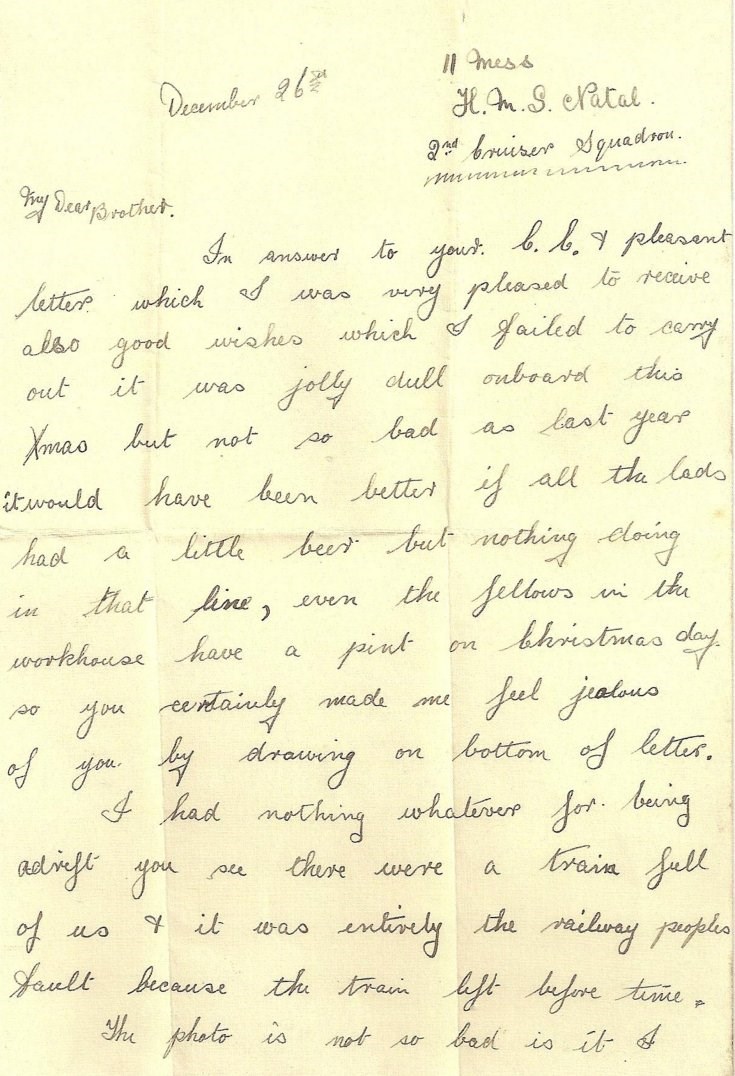 11 Mess
December 26th
H.M.S. Natal.
2nd Cruiser Squadron.
My Dear Brother.
In answer to your. C.C. & pleasant
letter which I was very pleased to receive
also good wishes which I failed to carry
out it was jolly dull onboard this
Xmas but not so bad as last year
it would have been better if all the lads
had a little beer but nothing doing
in that line, even the fellows in the
workhouse have a pint on Christmas day.
so you certainly made me feel jealous
of you. by drawing on bottom of letter.
I had nothing whatever for being
adrift you see there were a train full
of us & it was entirely the railway peoples
fault because the train left before time.
The photo is not so bad is it I